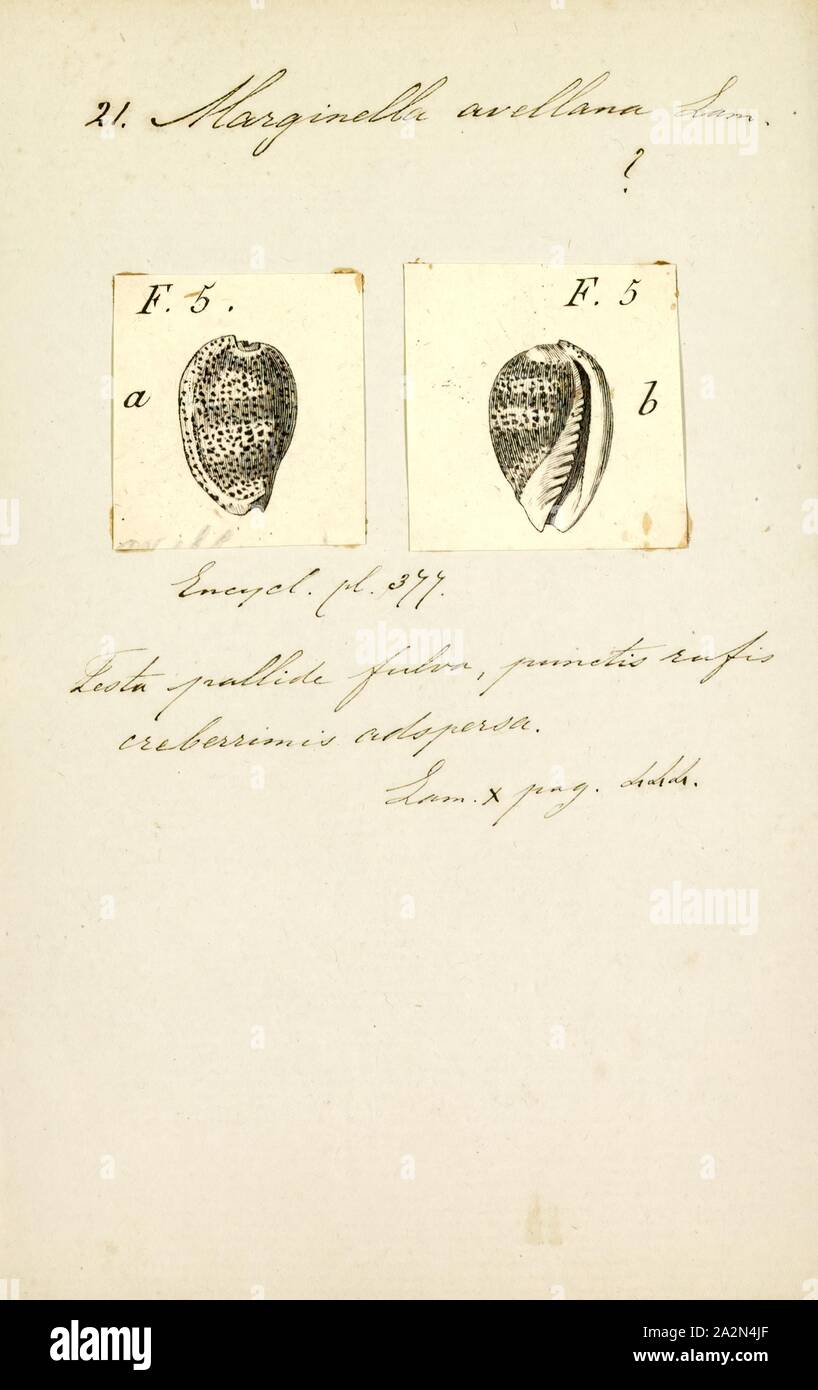 21. Marginella avellana Lam.
?
F. 5.
a
F. 5
b
Encycl. pl. 377.
Testa pallide fulva, punctis rufis
creberrimis adspersa.
Lam. x pag.
alamy
Image ID: 2A2N4JF
www.alamy.com